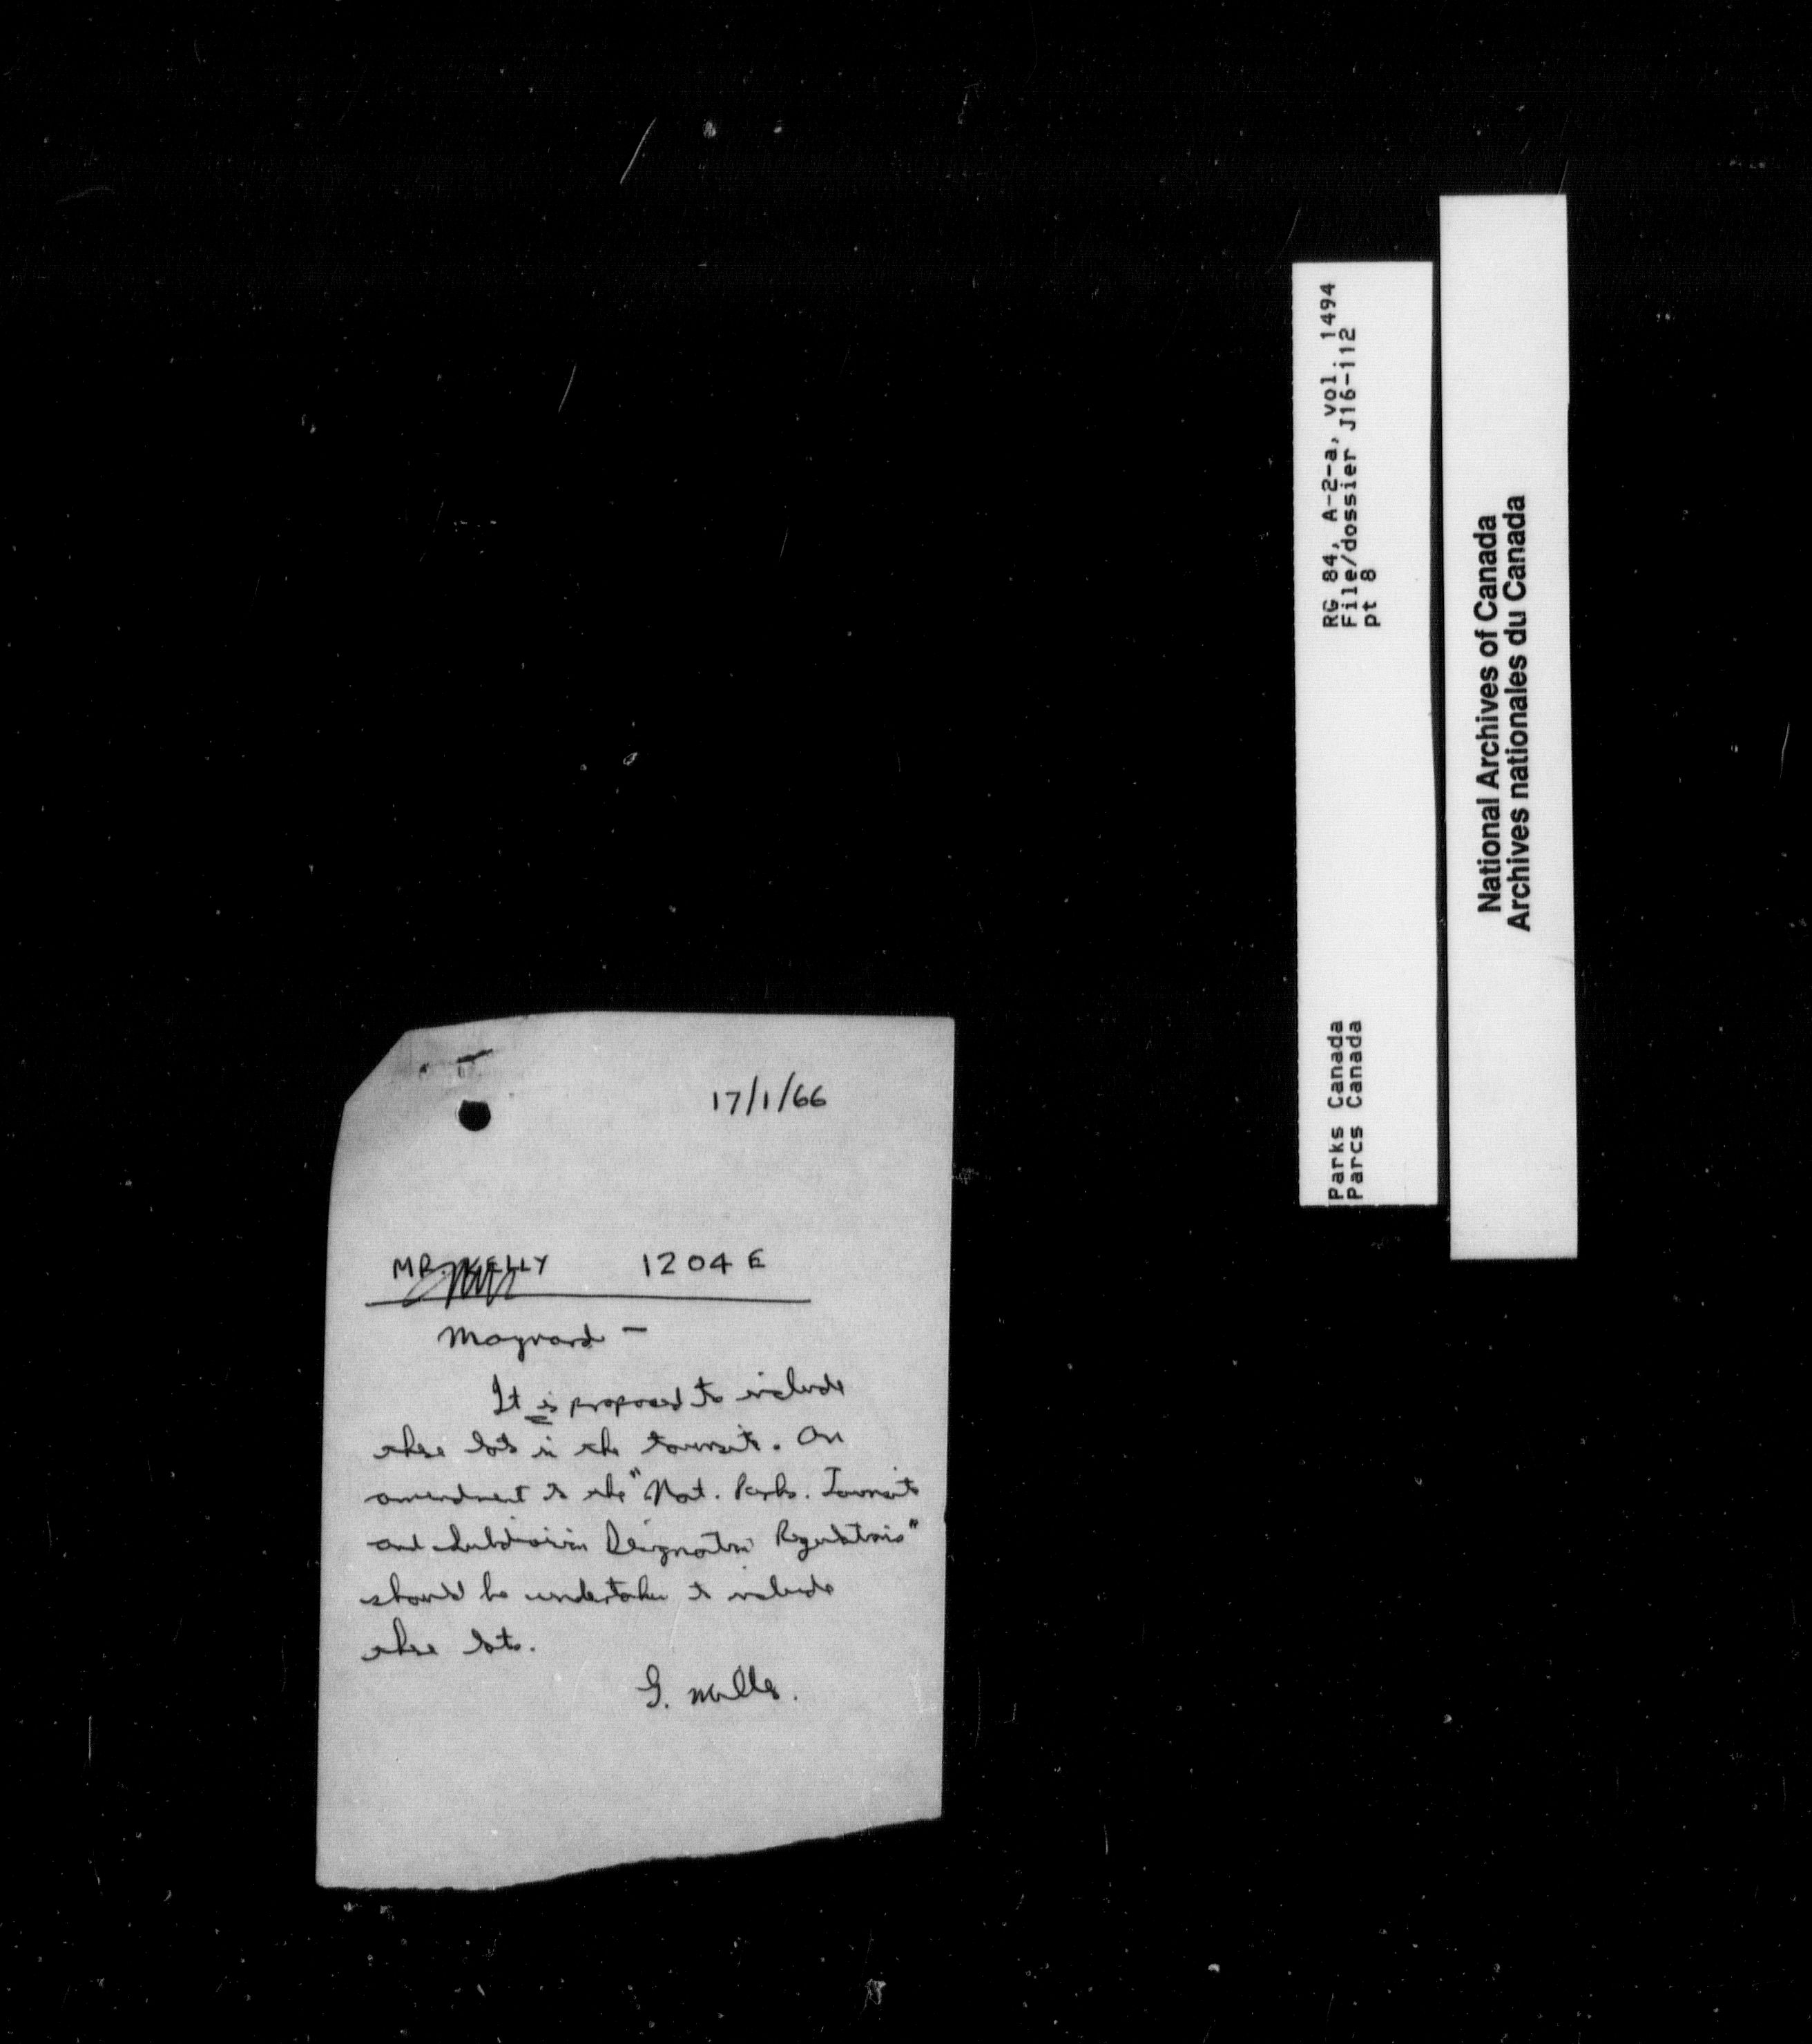 17/1/66
MR. KELLY 1204 E
Maynard —
It is proposed to include
these lots in the townsite. An
amendment to the "Nat. Parks. Townsite
and Subdivision Designation Regulations"
should be undertaken to include
these lots.
G. Mills.
RG 84, A-2-a, vol. 1494
File/dossier J16-112
pt 8
Parks Canada
Parcs Canada
National Archives of Canada
Archives nationales du Canada